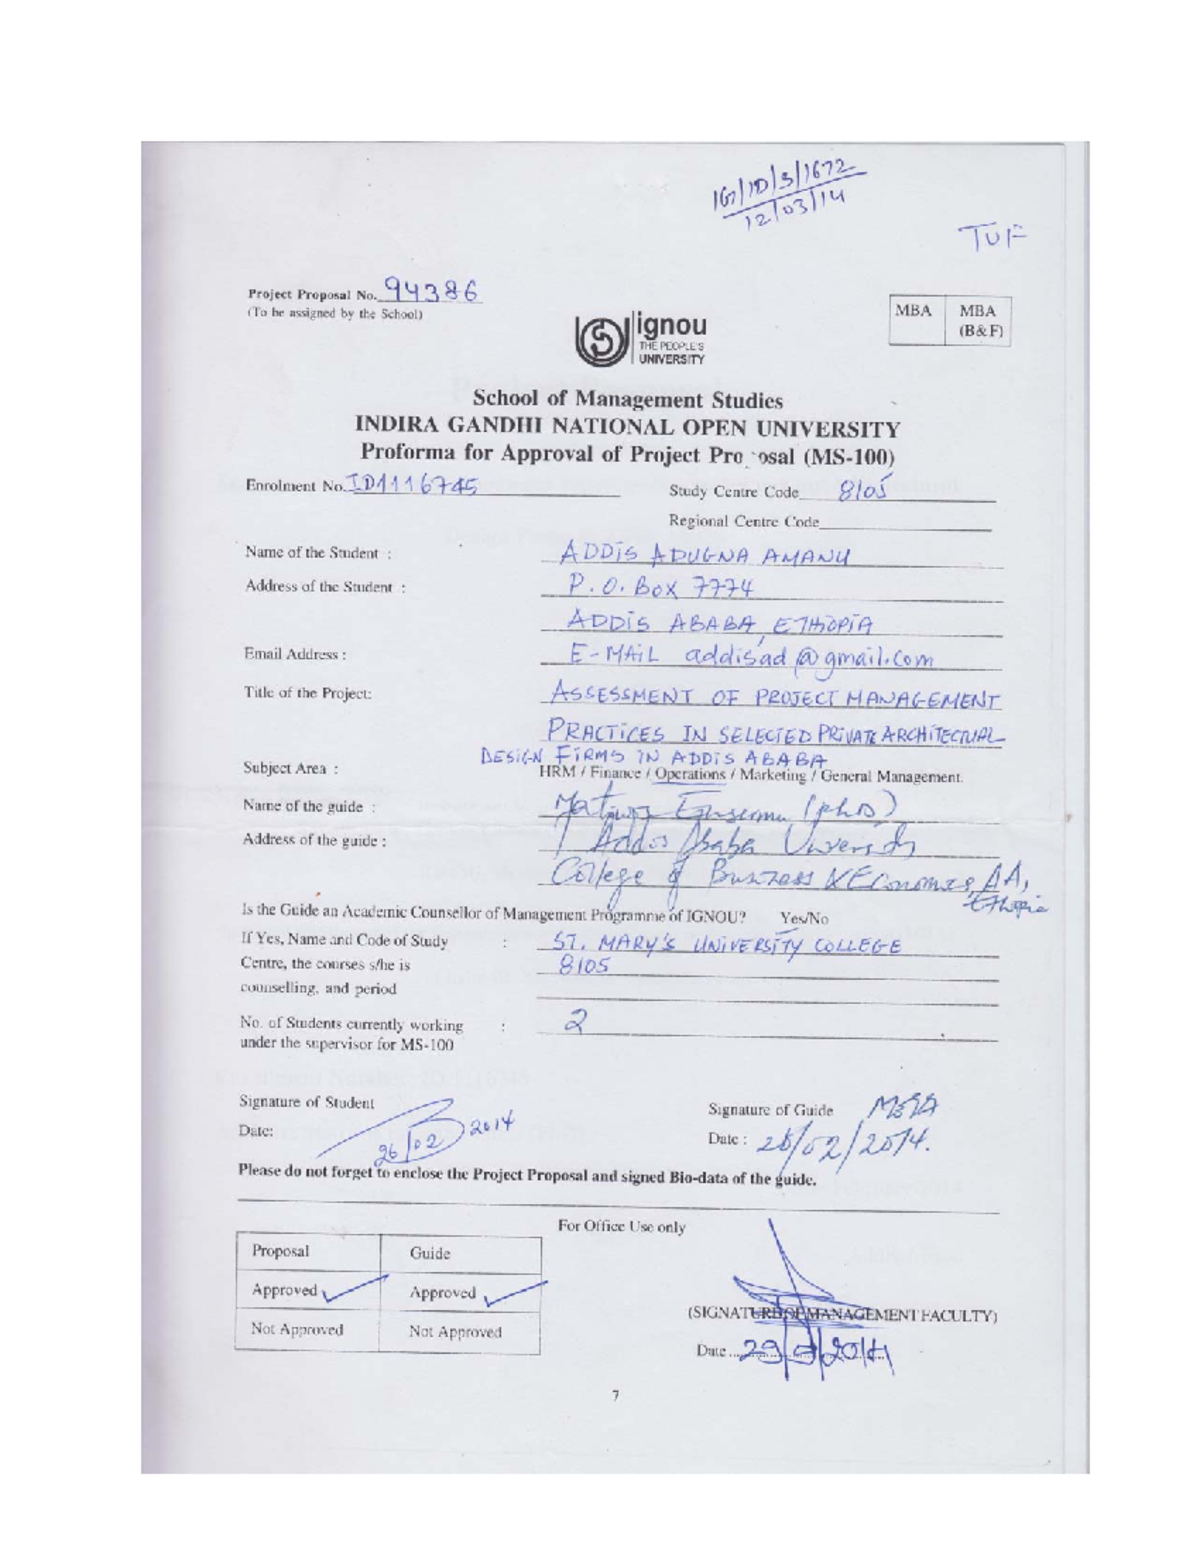 IG/ID/S/1672
12/03/14
TUF
Project Proposal No. 94386
(To be assigned by the School)
MBA MBA (B&F)
ignou
THE PEOPLE'S
UNIVERSITY
School of Management Studies
INDIRA GANDHI NATIONAL OPEN UNIVERSITY
Proforma for Approval of Project Pro osal (MS-100)
Enrolment No. ID1116745 Study Centre Code 8105
Regional Centre Code
Name of the Student : ADDIS ADUGNA AMANU
Address of the Student : P.O. BOX 7774
ADDIS ABABA, ETHIOPIA
Email Address : E-MAIL addisad@gmail.com
Title of the Project: ASSESSMENT OF PROJECT MANAGEMENT
PRACTICES IN SELECTED PRIVATE ARCHITECTUAL
DESIGN FIRMS IN ADDIS ABABA
Subject Area : HRM / Finance / Operations / Marketing / General Management.
Name of the guide : (PhD)
Address of the guide : Addis Ababa University
College of Business & Economics, AA,
Ethiopia
Is the Guide an Academic Counsellor of Management Programme of IGNOU? Yes/No
If Yes, Name and Code of Study : ST. MARY'S UNIVERSITY COLLEGE
Centre, the courses s/he is 8105
counselling, and period
No. of Students currently working : 2
under the supervisor for MS-100
Signature of Student Signature of Guide
Date: 26/02/2014 Date : 26/02/2014.
Please do not forget to enclose the Project Proposal and signed Bio-data of the guide.
For Office Use only
Proposal Guide
Approved Approved
Not Approved Not Approved
(SIGNATURE OF MANAGEMENT FACULTY)
Date
7